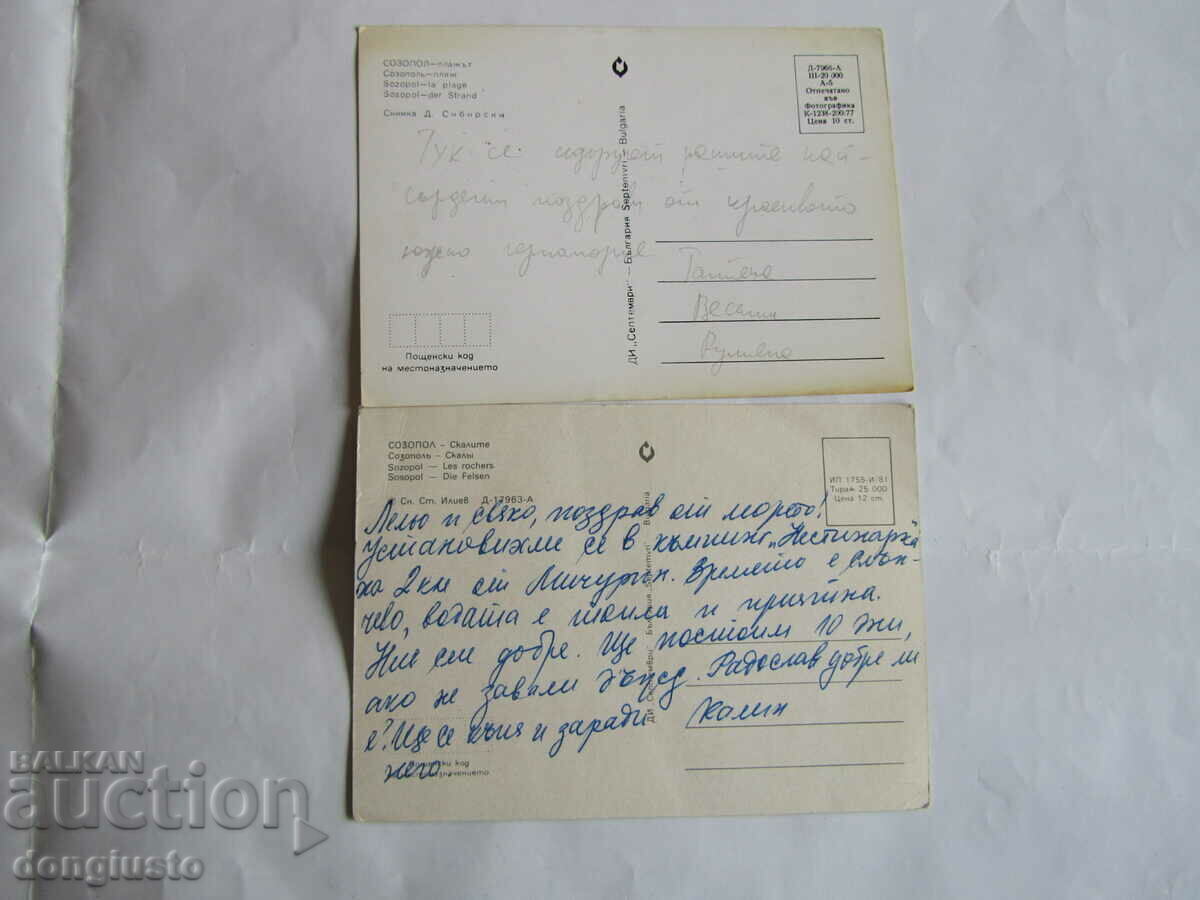 СОЗОПОЛ—плажът
Созополь—пляж
Sozopol—la plage
Sosopol—der Strand
Снимка Д. Сибирски
Д-7966-А
III-20 000
А-5
Отпечатано
във
Фотографика
К-1238-200/77
Цена 10 ст.
Тук се най-
сърдечни поздрави от красивото
южно черноморие
Весели
Румяна
Пощенски код
на местоназначението
ДИ „Септември" — България Septemvri - Bulgaria
СОЗОПОЛ – Скалите
Созополь – Скалы
Sozopol — Les rochers
Sosopol — Die Felsen
© Сн. Ст. Илиев Д-17963-А
ИП 1755-И 81
Тираж 25 000
Цена 12 ст.
Лельо и свако, поздрав от морето!
Установихме се в къмпинг „Нестинарка"
на 2 км от Мичурин. Времето е слън-
чево, водата е топла и приятна.
Ние сме добре. Ще постоим 10 дни,
ако не завали дъжд. Радослав добре ли
е? Ще се къпя и заради
него
Калин
Пощенски код
местоназначението
ДИ „Септември" България „Septemvri" Bulgaria
BALKAN
auction
dongiusto